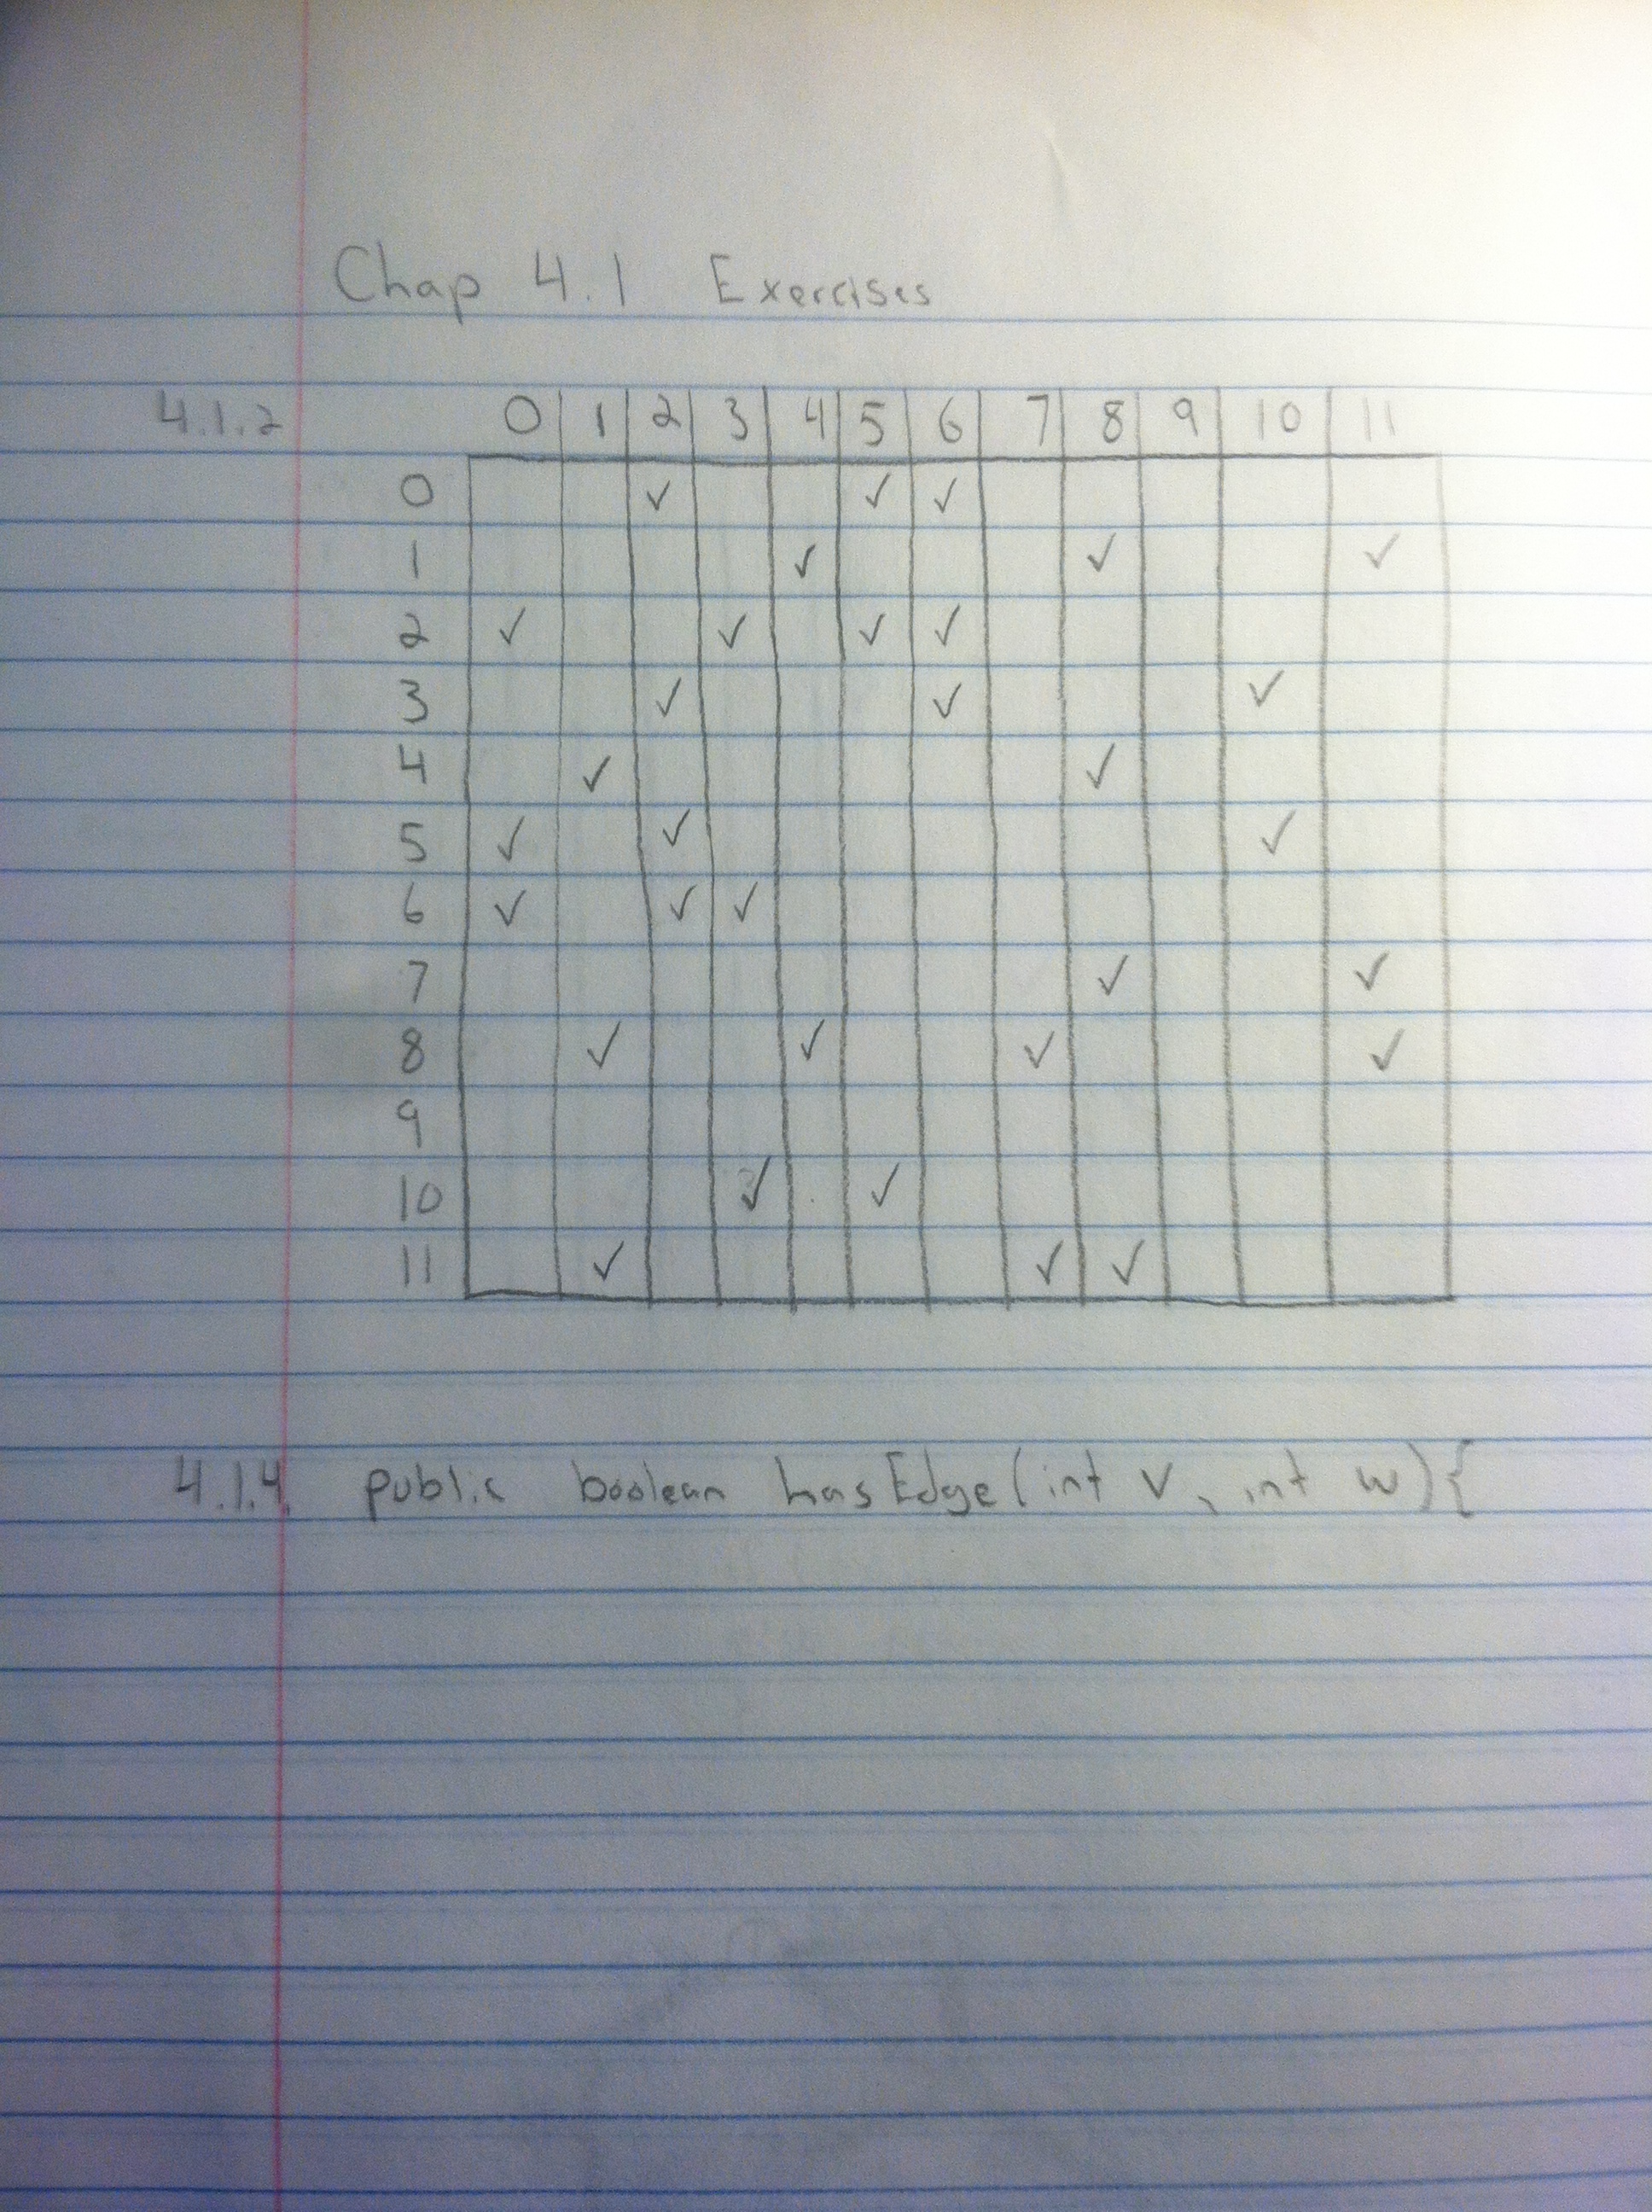 Chap 4.1 Exercises
4.1.2 0 1 2 3 4 5 6 7 8 9 10 11
0 ✓ ✓ ✓
1 ✓ ✓ ✓
2 ✓ ✓ ✓ ✓
3 ✓ ✓ ✓
4 ✓ ✓
5 ✓ ✓ ✓
6 ✓ ✓ ✓
7 ✓ ✓
8 ✓ ✓ ✓ ✓
9
10 ✓ ✓
11 ✓ ✓ ✓
4.1.4. public boolean hasEdge(int v, int w){